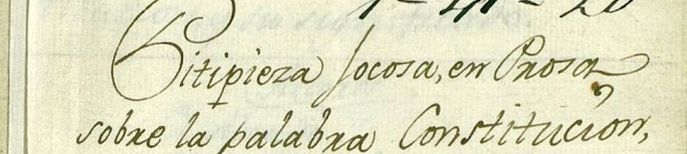 1-41-20
Sitipieza Jocosa, en Prosa
sobre la palabra Constitucion,